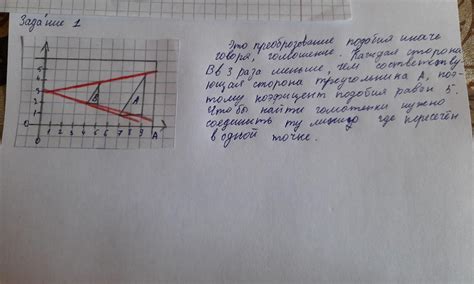 Задание 1
Это преброзование подобия иначе
говоря, гомошение. Каждая сторона
В в 3 раза меньше, чем соответству
ющая сторона треугольника А, поэ-
тому коэфицент подобия равен
Чтобы найти гомотетии нужно
соединить ту где пересечён
в одной точке.
5
4
3
2
1
В
А
1 2 3 4 5 6 7 8 9 А